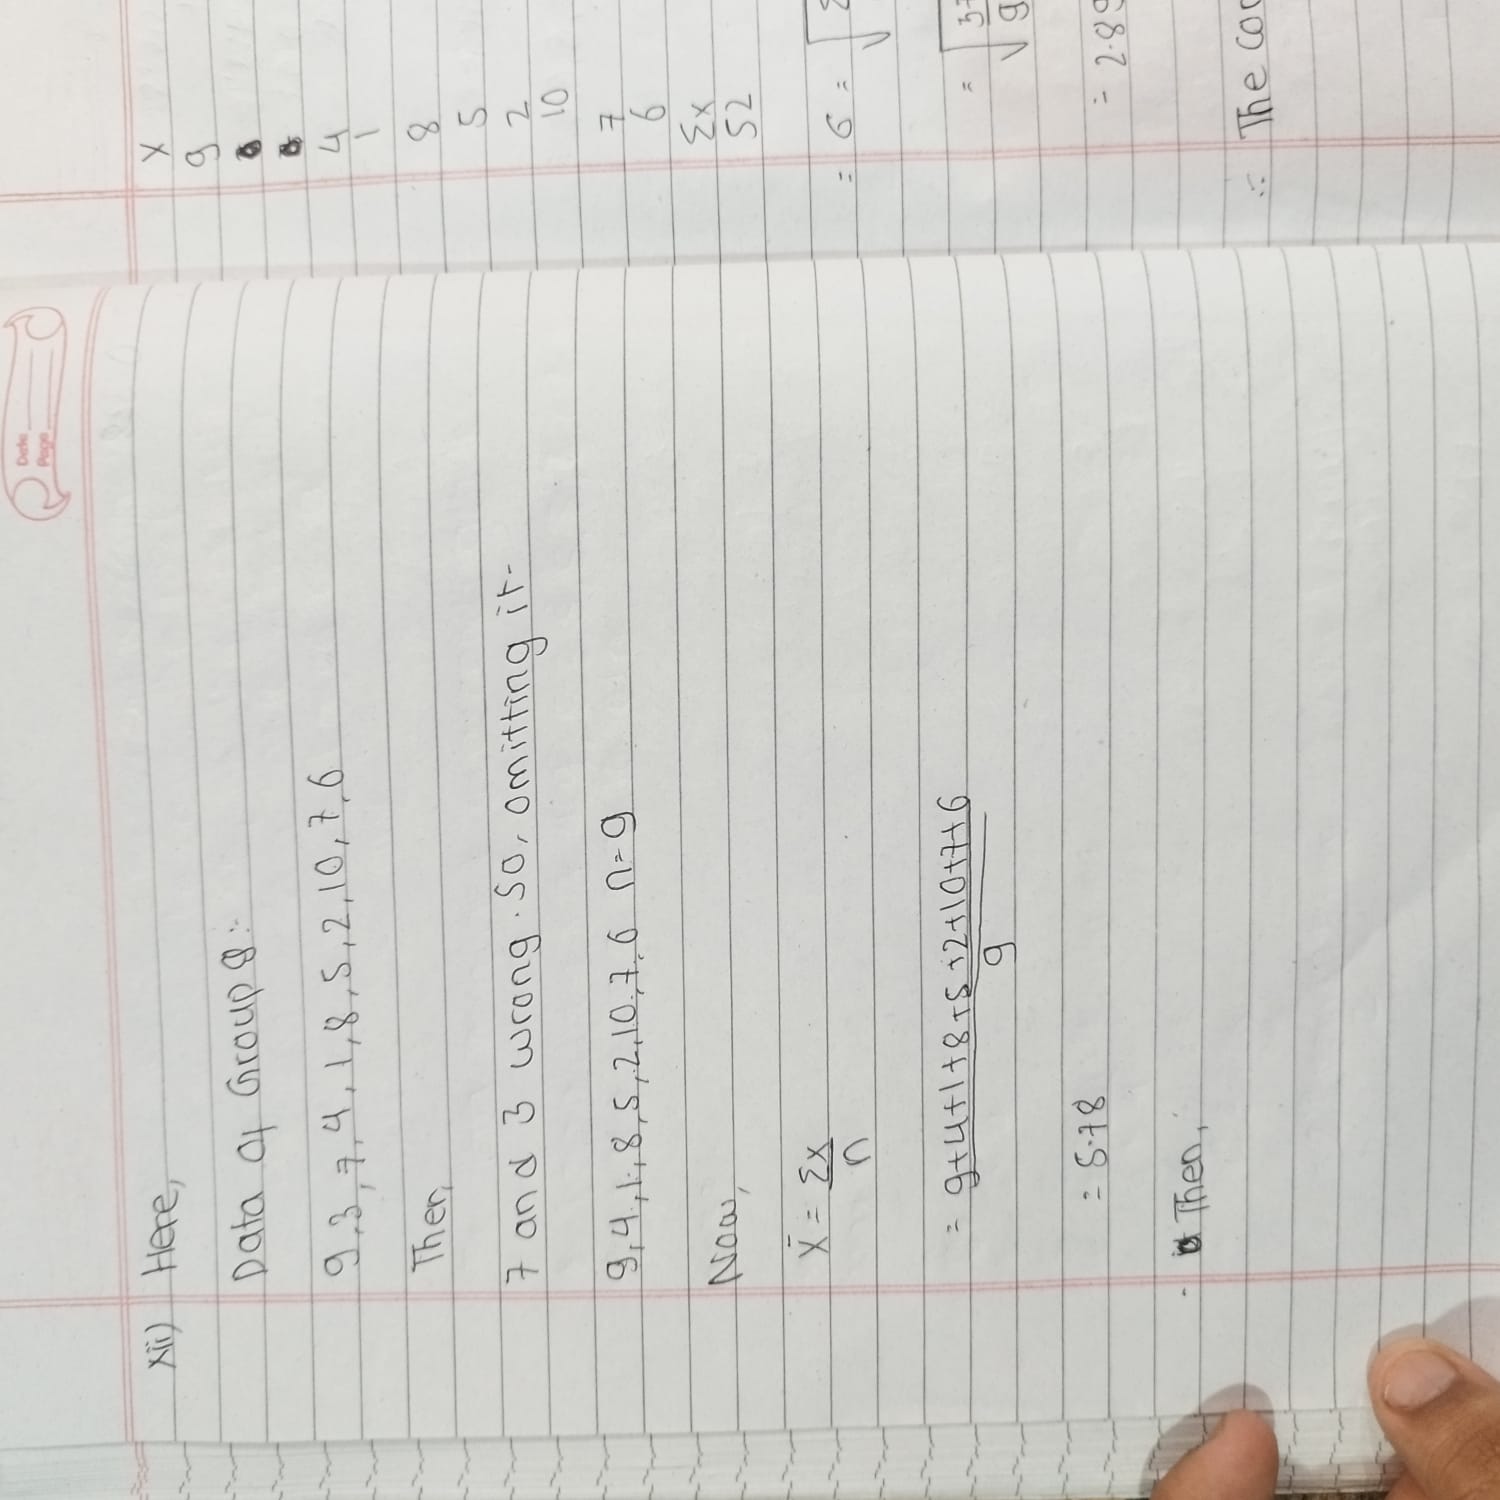 Date
Page
xii) Here,
Data of Group 8:-
9,3,7,4,1,8,5,2,10,7,6
Then,
7 and 3 wrong. So, omitting it-
9,4,1,8,5,2,10,7,6 n=9
Now,
X̄ = Σx
n
= 9+4+1+8+5+2+10+7+6
9
= 5.78
Then,
X
9
4
1
8
5
2
10
7
6
Σx
52
= σ = √Σ
= √
9
= 2.89
∴ The